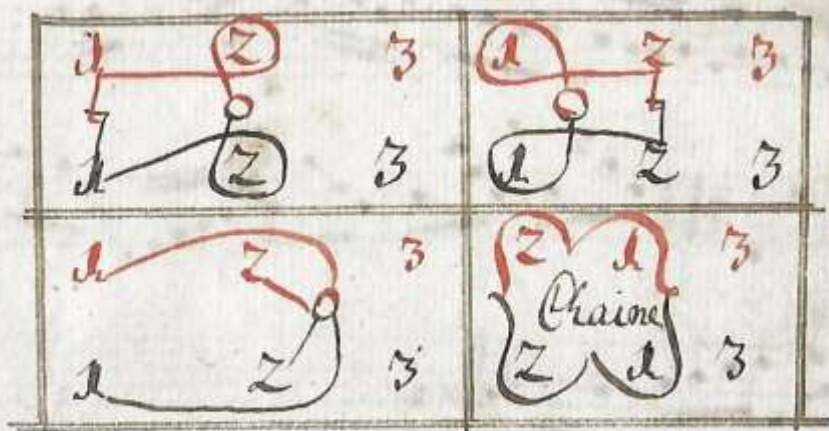 1 2 3
1 2 3
1 2 3
1 2 3
1 2 3
1 2 3
2 1 3
Chaine
2 1 3